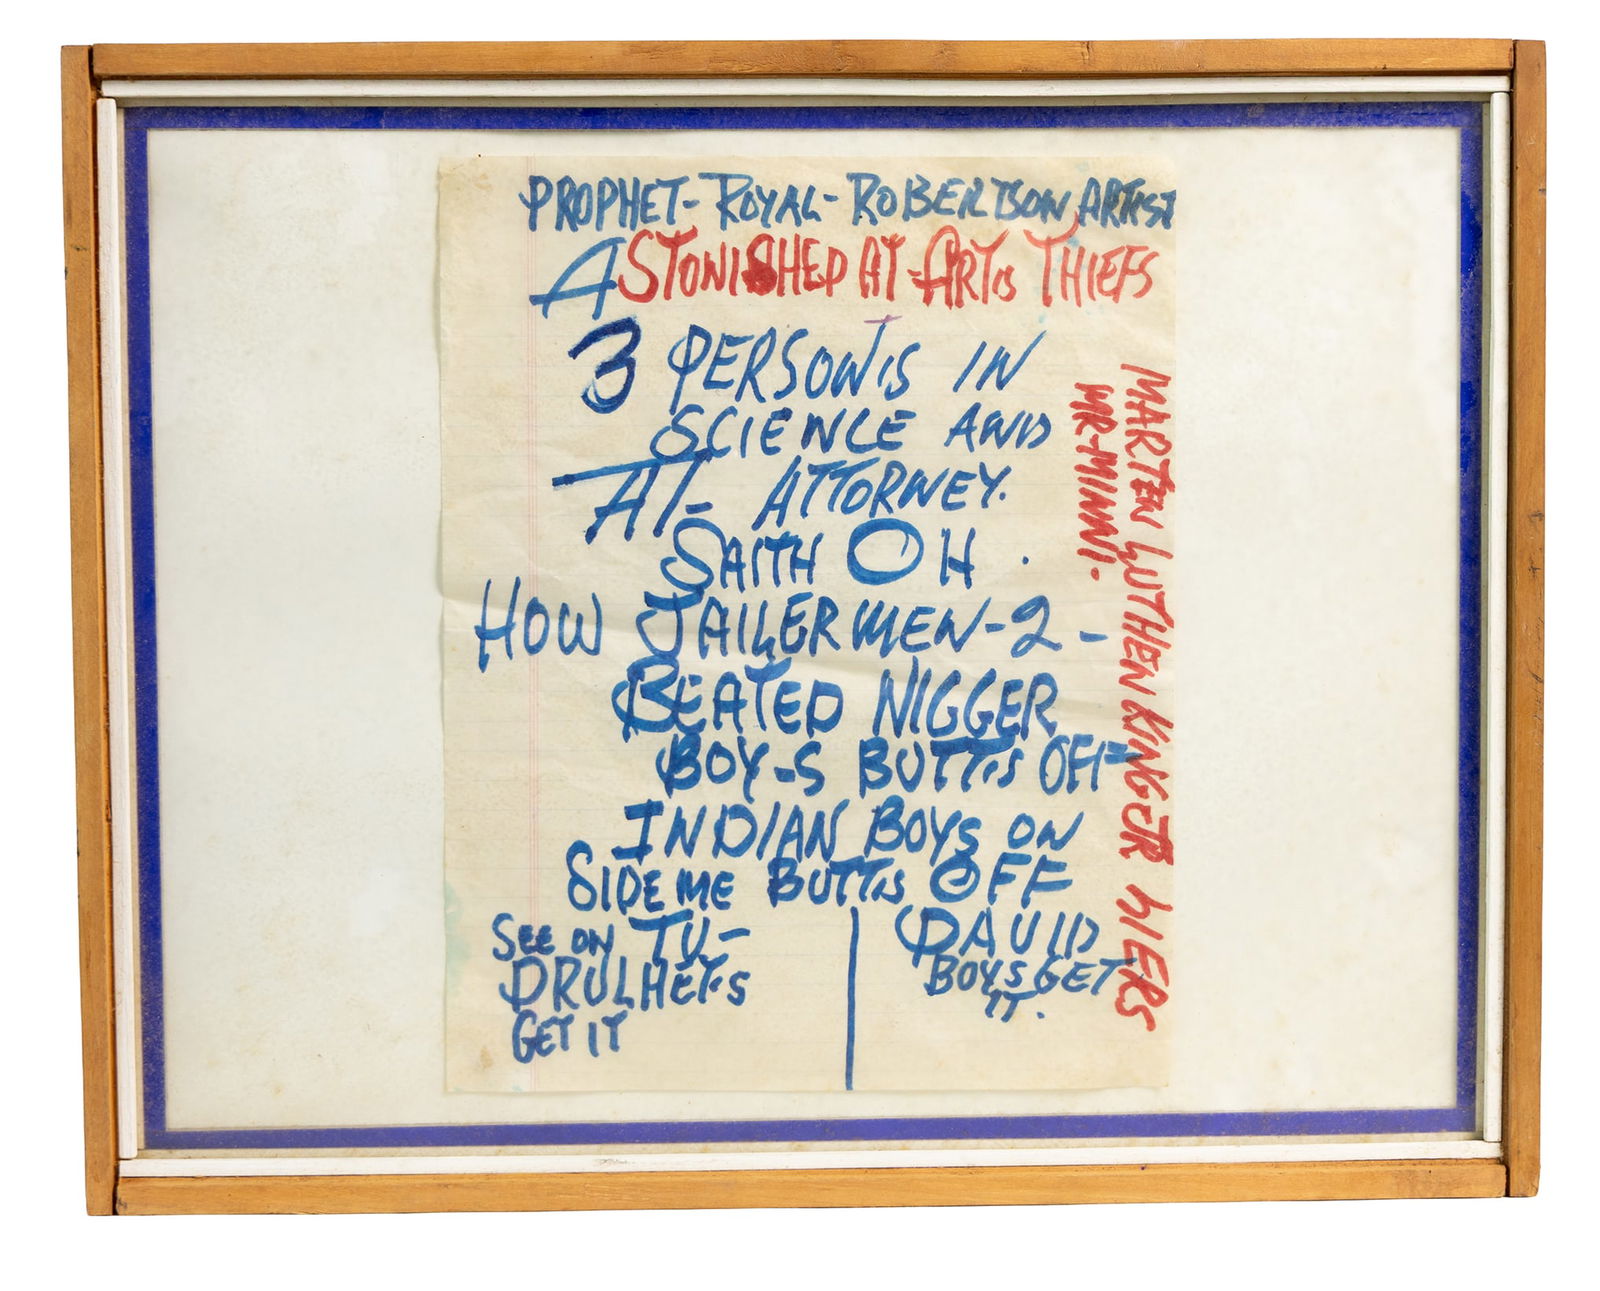 PROPHET-ROYAL-ROBERTSON ARTIST
ASTONISHED AT ARTIS THIEFS
3 PERSON'IS IN
SCIENCE AND
AT- ATTORNEY.
SAITH OH.
HOW JAILERMEN-2-
BEATED NIGGER
BOY-S BUTTIS OFF
INDIAN BOYS ON
SIDE ME BUTTIS OFF
SEE ON TU-
DRULHET-S
GET IT
DAVID
BOYS GET
IT.
MARTEN LUTHEN KINGER LIERS
MR-MINNI-